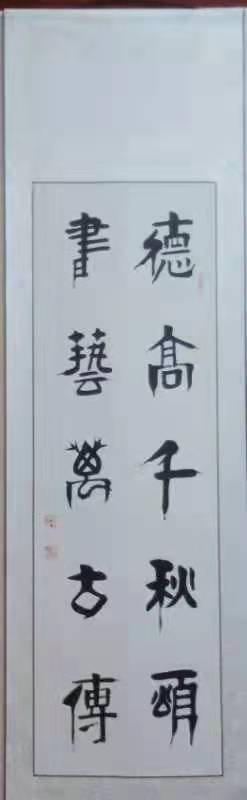 德高千秋頌
書藝萬古傳